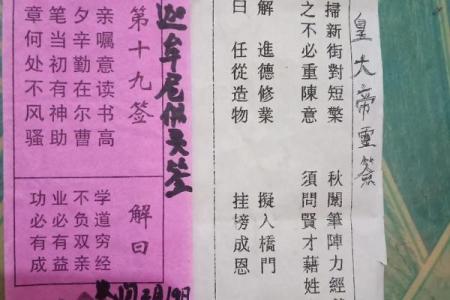 皇大帝靈簽
掃新街對短繁 秋闈筆陣力經
之不必重陳意 須問賢才藉姓
解 進德修業 擬入橋門
曰 任從造物 挂榜成恩
迦牟尼佛灵签
第十九签
亲嘱意读书高
夕辛勤在尔曹
笔当初有神助
章何处不风骚
解曰
学道穷经
不负双亲
业必有益
功必有成
月19日